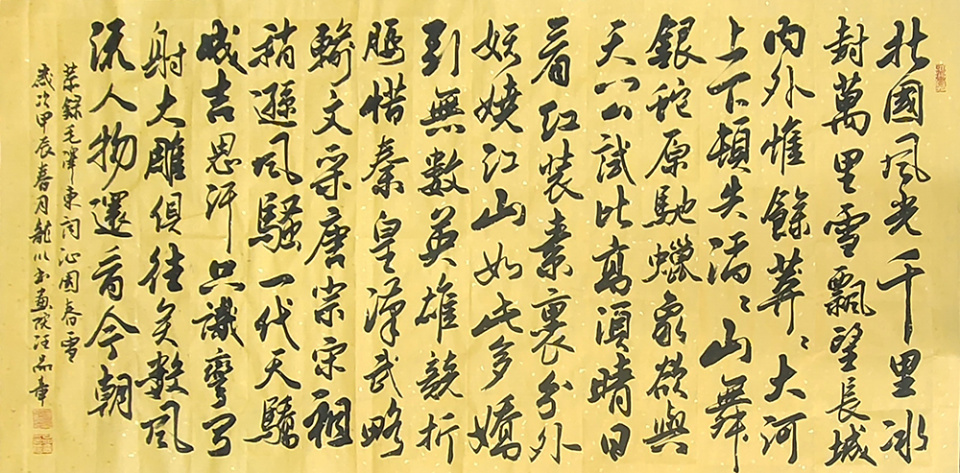 北國風光千里冰
封萬里雪飄望長城
內外惟餘莽〻大河
上下頓失滔〻山舞
銀蛇原馳蠟象欲與
天公試比高須晴日
看紅裝素裹分外
妖嬈江山如此多嬌
引無數英雄競折
腰惜秦皇漢武略
輸文采唐宗宋祖
稍遜風騷一代天驕
成吉思汗只識彎弓
射大雕俱往矣數風
流人物還看今朝
恭錄毛澤東詞沁園春雪
歲次甲辰春月龍川書畫院汪品章